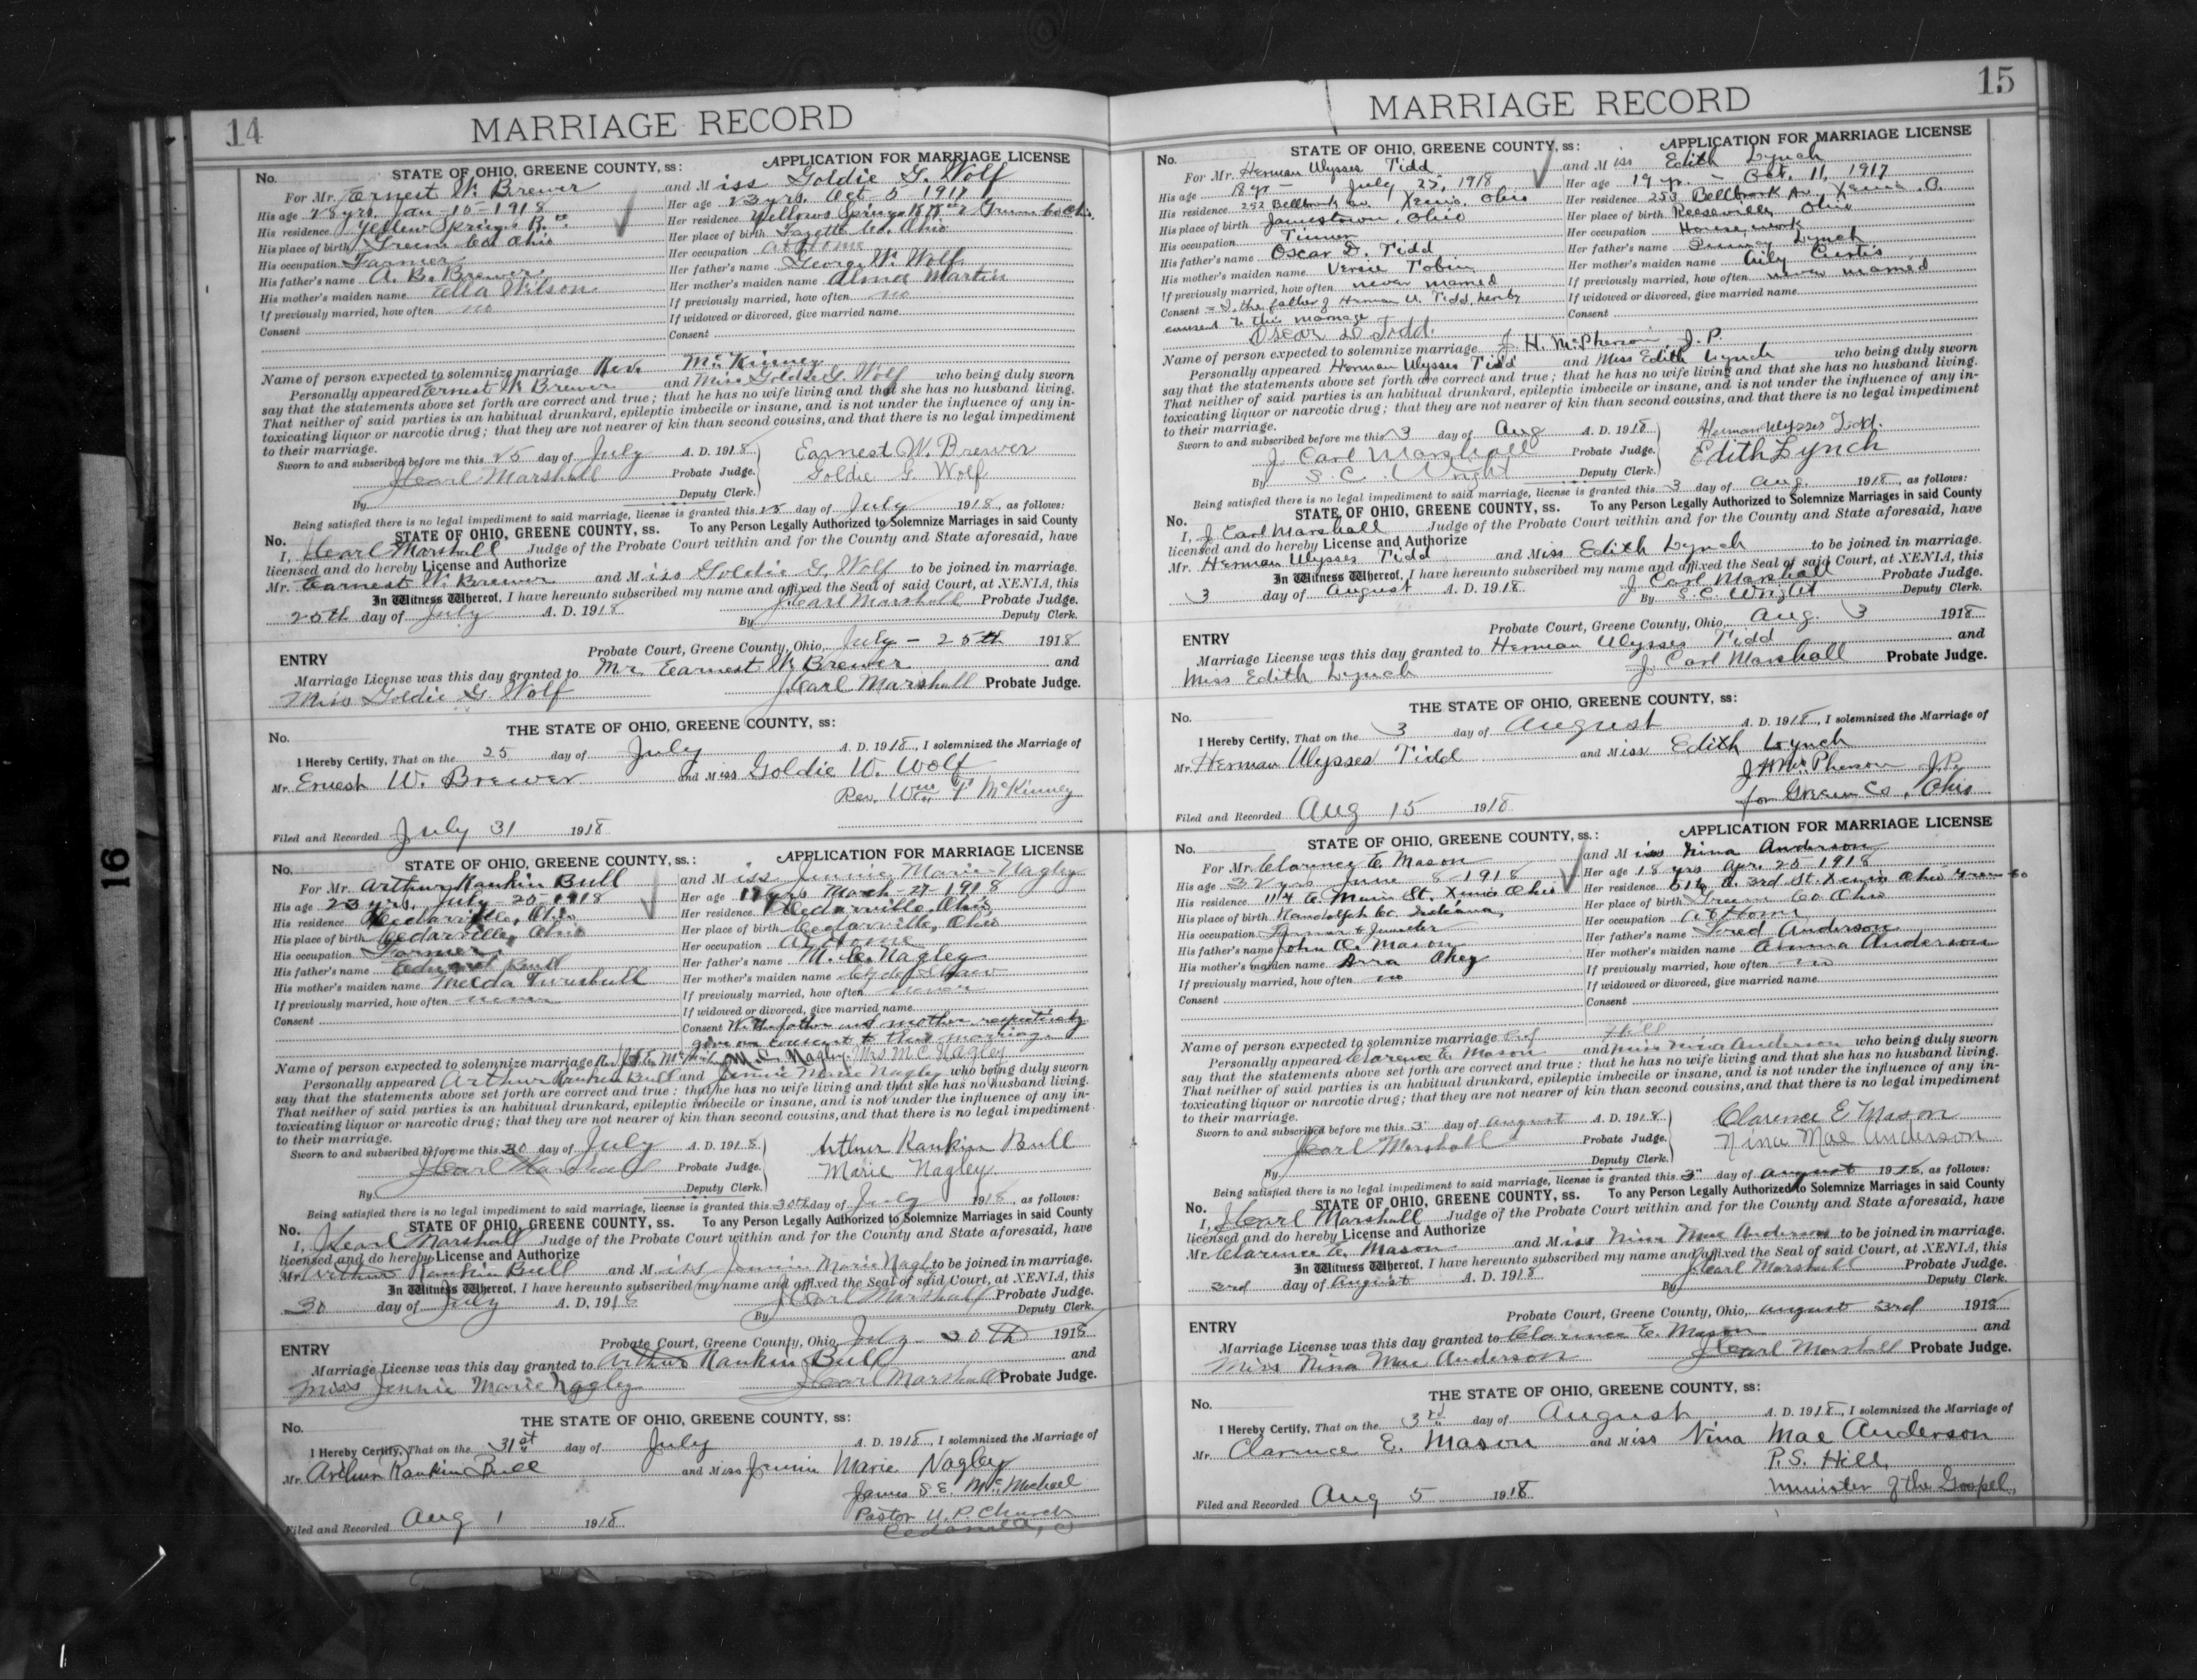 14
MARRIAGE RECORD
No. STATE OF OHIO, GREENE COUNTY, ss: APPLICATION FOR MARRIAGE LICENSE
For Mr. Ernest W. Brewer and Miss Goldie G. Wolf
His age 28 yrs. Jan-15-1918 Her age 23 yrs. Oct 5 1917
His residence Yellow Springs R. Her residence Yellow Springs Greene Co
His place of birth Greene Co. Ohio Her place of birth Fayette Co. Ohio
His occupation Farmer Her occupation at Home
His father's name A. B. Brewer Her father's name George W. Wolf
His mother's maiden name Ella Wilson Her mother's maiden name Alma Martin
If previously married, how often no If previously married, how often no
If widowed or divorced, give married name
Consent Consent
Name of person expected to solemnize marriage Rev. McKinney
Personally appeared Ernest W. Brewer and Miss Goldie G. Wolf who being duly sworn
say that the statements above set forth are correct and true; that he has no wife living and that she has no husband living.
That neither of said parties is an habitual drunkard, epileptic imbecile or insane, and is not under the influence of any in-
toxicating liquor or narcotic drug; that they are not nearer of kin than second cousins, and that there is no legal impediment
to their marriage.
Sworn to and subscribed before me this 25 day of July A. D. 1918 Earnest W. Brewer
J Carl Marshall Probate Judge. Goldie G. Wolf
By Deputy Clerk.
Being satisfied there is no legal impediment to said marriage, license is granted this 25 day of July 1918, as follows:
No. STATE OF OHIO, GREENE COUNTY, ss. To any Person Legally Authorized to Solemnize Marriages in said County
I, J Carl Marshall Judge of the Probate Court within and for the County and State aforesaid, have
licensed and do hereby License and Authorize
Mr. Earnest W. Brewer and Miss Goldie G. Wolf to be joined in marriage.
In Witness Whereof, I have hereunto subscribed my name and affixed the Seal of said Court, at XENIA, this
25th day of July A. D. 1918 J. Carl Marshall Probate Judge.
By Deputy Clerk.
ENTRY Probate Court, Greene County, Ohio, July-25th 1918
Marriage License was this day granted to Mr. Earnest W. Brewer and
Miss Goldie G. Wolf J. Carl Marshall Probate Judge.
No. THE STATE OF OHIO, GREENE COUNTY, ss:
I Hereby Certify, That on the 25 day of July A. D. 1918, I solemnized the Marriage of
Mr. Ernest W. Brewer and Miss Goldie W. Wolf
Rev. Wm F McKinney
Filed and Recorded July 31 1918
No. STATE OF OHIO, GREENE COUNTY, ss.: APPLICATION FOR MARRIAGE LICENSE
For Mr. Arthur Rankin Bull and Miss Jennie Marie Nagley
His age 23 yrs. July-20-1918 Her age 17 yrs March-27-1918
His residence Cedarville, Ohio Her residence Cedarville, Ohio
His place of birth Cedarville, Ohio Her place of birth Cedarville, Ohio
His occupation Farmer Her occupation At Home
His father's name Edward Bull Her father's name M. C. Nagley
His mother's maiden name Turnbull Her mother's maiden name
If previously married, how often never If previously married, how often never
If widowed or divorced, give married name
Consent Consent We the father and mother respectively
give our consent to this marriage
Name of person expected to solemnize marriage M. C. Nagley. Mrs. M C Nagley
Personally appeared Arthur Rankin Bull and Jennie Marie Nagley who being duly sworn
say that the statements above set forth are correct and true: that he has no wife living and that she has no husband living.
That neither of said parties is an habitual drunkard, epileptic imbecile or insane, and is not under the influence of any in-
toxicating liquor or narcotic drug; that they are not nearer of kin than second cousins, and that there is no legal impediment
to their marriage.
Sworn to and subscribed before me this 30 day of July A. D. 1918 Arthur Rankin Bull
J Carl Marshall Probate Judge. Marie Nagley.
By Deputy Clerk.
Being satisfied there is no legal impediment to said marriage, license is granted this 30th day of July 1918, as follows:
No. STATE OF OHIO, GREENE COUNTY, ss. To any Person Legally Authorized to Solemnize Marriages in said County
I, J Carl Marshall Judge of the Probate Court within and for the County and State aforesaid, have
licensed and do hereby License and Authorize
Mr. Arthur Rankin Bull and Miss Jennie Marie Nagley to be joined in marriage.
In Witness Whereof, I have hereunto subscribed my name and affixed the Seal of said Court, at XENIA, this
30 day of July A. D. 1918 J Carl Marshall Probate Judge.
By Deputy Clerk.
ENTRY Probate Court, Greene County, Ohio, July 30th 1918
Marriage License was this day granted to Arthur Rankin Bull and
Miss Jennie Marie Nagley J Carl Marshall Probate Judge.
No. THE STATE OF OHIO, GREENE COUNTY, ss:
I Hereby Certify, That on the 31st day of July A. D. 1918, I solemnized the Marriage of
Mr. Arthur Rankin Bull and Miss Jennie Marie Nagley
James S. E. McMichael
Pastor U. P. Church
Cedarville, O
Filed and Recorded Aug 1 1918
15
MARRIAGE RECORD
No. STATE OF OHIO, GREENE COUNTY, ss: APPLICATION FOR MARRIAGE LICENSE
For Mr. Herman Ulysses Tidd and Miss Edith Lynch
His age 18 yr- July 25, 1918 Her age 19 yr. - Oct. 11, 1917
His residence 252 Bellbrook Av. Xenia, Ohio Her residence 253 Bellbrook Av. Xenia, O.
His place of birth Jamestown, Ohio Her place of birth Reeseville, Ohio
His occupation Tinner Her occupation Housework
His father's name Oscar D. Tidd Her father's name Lynch
His mother's maiden name Versie Tobin Her mother's maiden name Curtis
If previously married, how often never married If previously married, how often never married
Consent - I, the father of Herman U. Tidd, hereby If widowed or divorced, give married name
consent to this marriage Consent
Oscar D Tidd.
Name of person expected to solemnize marriage J. H. McPherson, J. P.
Personally appeared Herman Ulysses Tidd and Miss Edith Lynch who being duly sworn
say that the statements above set forth are correct and true; that he has no wife living and that she has no husband living.
That neither of said parties is an habitual drunkard, epileptic imbecile or insane, and is not under the influence of any in-
toxicating liquor or narcotic drug; that they are not nearer of kin than second cousins, and that there is no legal impediment
to their marriage.
Sworn to and subscribed before me this 3 day of Aug A. D. 1918 Herman Ulysses Tidd.
J. Carl Marshall Probate Judge. Edith Lynch
By S. C. Wright Deputy Clerk.
Being satisfied there is no legal impediment to said marriage, license is granted this 3 day of Aug. 1918, as follows:
No. STATE OF OHIO, GREENE COUNTY, ss. To any Person Legally Authorized to Solemnize Marriages in said County
I, J Carl Marshall Judge of the Probate Court within and for the County and State aforesaid, have
licensed and do hereby License and Authorize
Mr. Herman Ulysses Tidd and Miss Edith Lynch to be joined in marriage.
In Witness Whereof, I have hereunto subscribed my name and affixed the Seal of said Court, at XENIA, this
3 day of August A. D. 1918 J. Carl Marshall Probate Judge.
By S. C. Wright Deputy Clerk.
ENTRY Probate Court, Greene County, Ohio, Aug. 3 1918
Marriage License was this day granted to Herman Ulysses Tidd and
Miss Edith Lynch J. Carl Marshall Probate Judge.
No. THE STATE OF OHIO, GREENE COUNTY, ss:
I Hereby Certify, That on the 3 day of August A. D. 1918, I solemnized the Marriage of
Mr. Herman Ulysses Tidd and Miss Edith Lynch
J H McPherson J.P.
for Greene Co, Ohio
Filed and Recorded Aug 15 1918
No. STATE OF OHIO, GREENE COUNTY, ss.: APPLICATION FOR MARRIAGE LICENSE
For Mr. Clarence E. Mason and Miss Nina Anderson
His age 32 yrs June 8-1918 Her age 18 yrs Apr. 25-1918
His residence 1114 E Main St. Xenia Ohio Her residence 516 E. 3rd St. Xenia Ohio Greene Co
His place of birth Randolph Co. Indiana Her place of birth Greene Co Ohio
His occupation Farmer & Jeweller Her occupation at Home
His father's name John A. Mason Her father's name Fred Anderson
His mother's maiden name Arra Okey Her mother's maiden name Anderson
If previously married, how often no If previously married, how often no
If widowed or divorced, give married name
Consent Consent
Name of person expected to solemnize marriage Hill
Personally appeared Clarence E. Mason and Miss Nina Anderson who being duly sworn
say that the statements above set forth are correct and true: that he has no wife living and that she has no husband living.
That neither of said parties is an habitual drunkard, epileptic imbecile or insane, and is not under the influence of any in-
toxicating liquor or narcotic drug; that they are not nearer of kin than second cousins, and that there is no legal impediment
to their marriage.
Sworn to and subscribed before me this 3" day of August A. D. 1918. Clarence E. Mason
J Carl Marshall Probate Judge. Nina Mae Anderson
By Deputy Clerk.
Being satisfied there is no legal impediment to said marriage, license is granted this 3" day of August 1918, as follows:
No. STATE OF OHIO, GREENE COUNTY, ss. To any Person Legally Authorized to Solemnize Marriages in said County
I, J Carl Marshall Judge of the Probate Court within and for the County and State aforesaid, have
licensed and do hereby License and Authorize
Mr. Clarence E. Mason and Miss Nina Mae Anderson to be joined in marriage.
In Witness Whereof, I have hereunto subscribed my name and affixed the Seal of said Court, at XENIA, this
3rd day of August A. D. 1918 J. Carl Marshall Probate Judge.
By Deputy Clerk.
ENTRY Probate Court, Greene County, Ohio, August 3rd 1918
Marriage License was this day granted to Clarence E. Mason and
Miss Nina Mae Anderson J Carl Marshall Probate Judge.
No. THE STATE OF OHIO, GREENE COUNTY, ss:
I Hereby Certify, That on the 3rd day of August A. D. 1918, I solemnized the Marriage of
Mr. Clarence E. Mason and Miss Nina Mae Anderson
P. S. Hill,
Minister of the Gospel.
Filed and Recorded Aug 5 1918
16